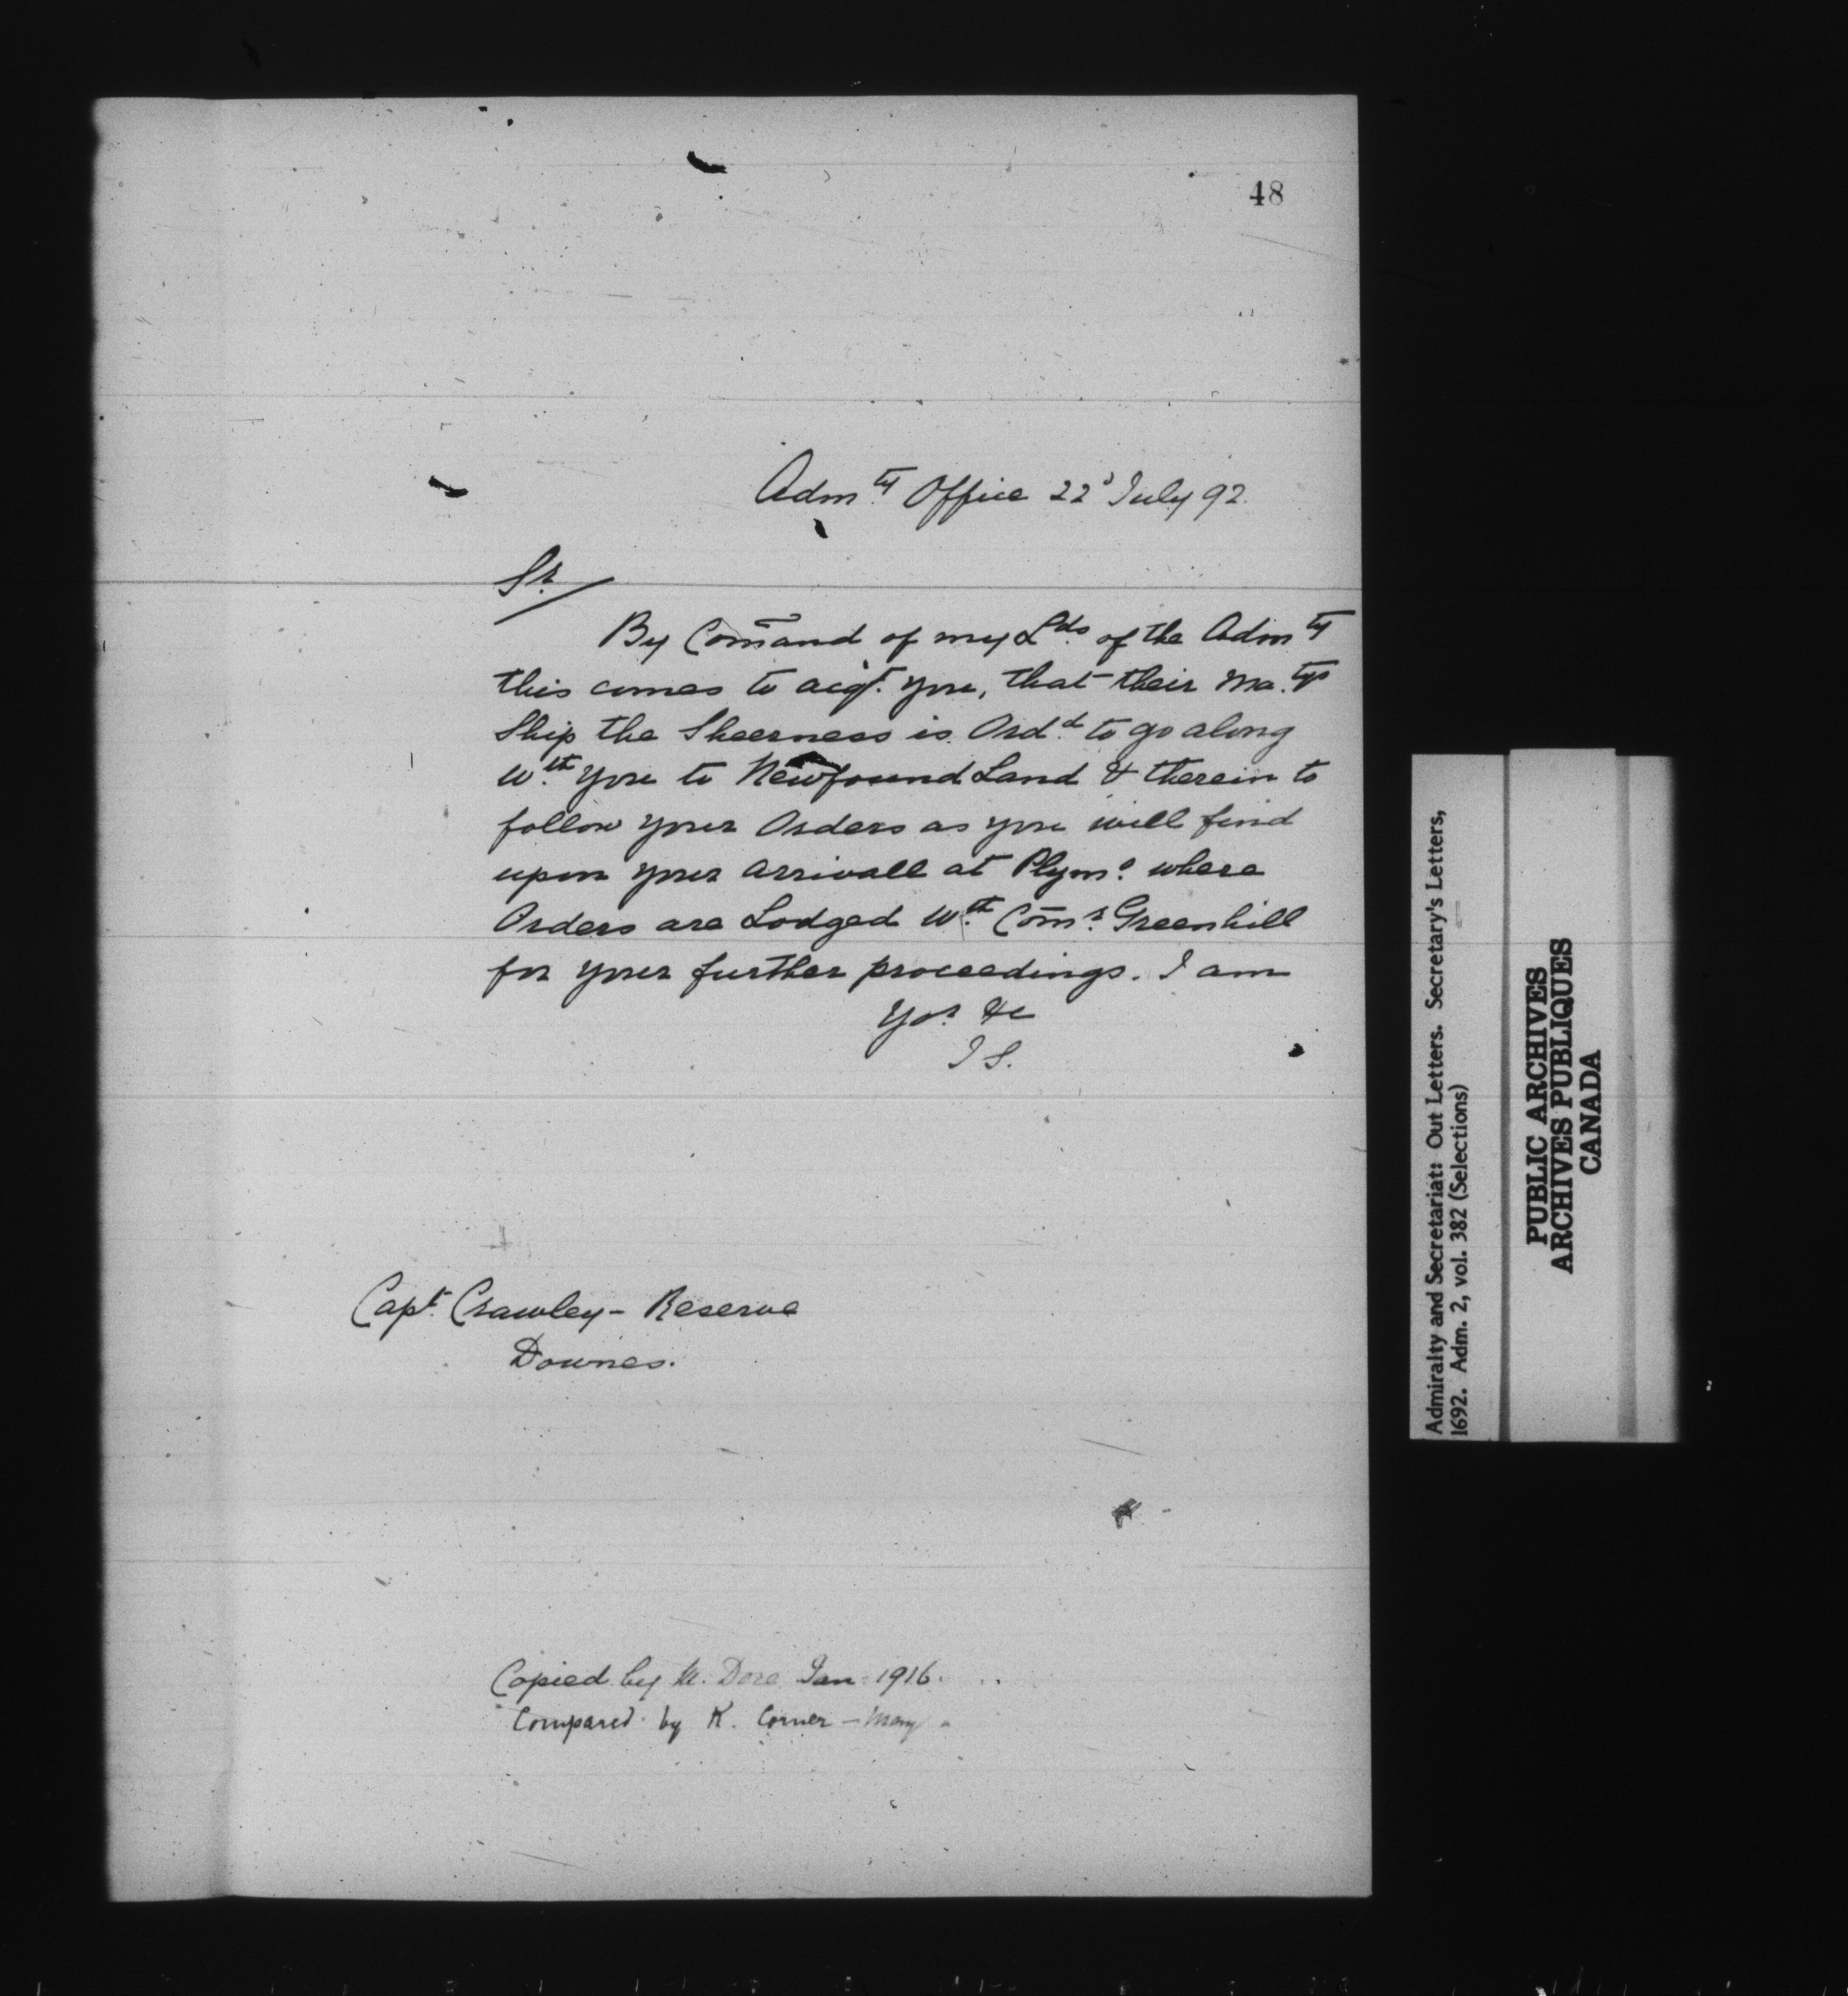 48
Adm.ty Office 22d July 92.
Sr./
By Com̄and of my Lds. of the Adm.ty
this comes to acqt. you, that their Ma.tys
Ship the Sheerness is Ord.d to go along
w.th you to Newfound Land & therein to
follow your Orders as you will find
upon your arrivall at Plymo. where
Orders are Lodged w.th Com̄r. Greenhill
for your further proceedings. I am
Yor. &c
J S.
Capt. Crawley - Reserve
Downes.
Copied by M. Dore Jan 1916.
Compared by K. Corner - May "
Admiralty and Secretariat: Out Letters. Secretary's Letters,
1692. Adm. 2, vol. 382 (Selections)
PUBLIC ARCHIVES
ARCHIVES PUBLIQUES
CANADA